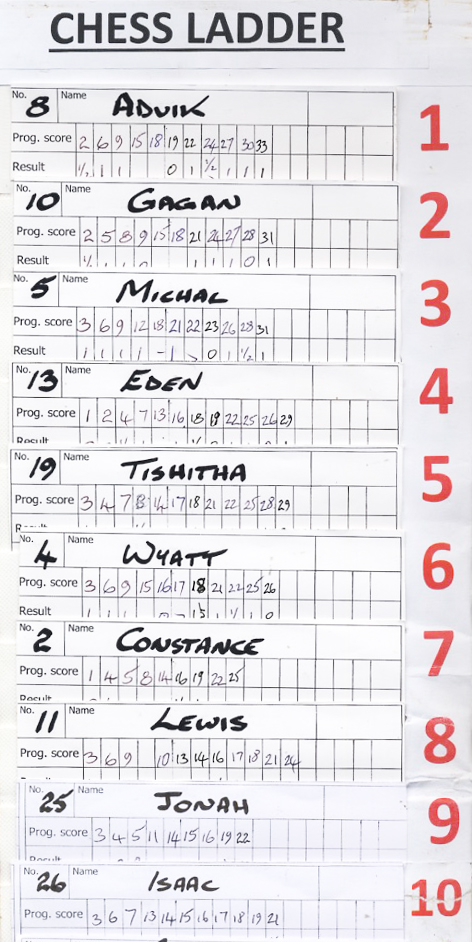 CHESS LADDER
No. 8 Name ADVIK 1
Prog. score 2 6 9 15 18 19 22 24 27 30 33
Result ½ 1 1 0 1 ½ 1 1 1
No. 10 Name GAGAN 2
Prog. score 2 5 8 9 15 18 21 24 27 28 31
Result 1 1 1 0 1
No. 5 Name MICHAL 3
Prog. score 3 6 9 12 18 21 22 23 26 28 31
Result 1 1 1 1 - 1 0 1 ½ 1
No. 13 Name EDEN 4
Prog. score 1 2 4 7 13 16 18 19 22 25 26 29
Result
No. 19 Name TISHITHA 5
Prog. score 3 4 7 13 14 17 18 21 22 25 28 29
No. 4 Name WYATT 6
Prog. score 3 6 9 15 16 17 18 21 22 25 26
Result 1 1 1 1 0
No. 2 Name CONSTANCE 7
Prog. score 1 4 5 8 14 16 19 22 25
Result
No. 11 Name LEWIS 8
Prog. score 3 6 9 10 13 14 16 17 18 21 24
No. 25 Name JONAH 9
Prog. score 3 4 5 11 14 15 16 19 22
Result
No. 26 Name ISAAC 10
Prog. score 3 6 7 13 14 15 16 17 18 19 21